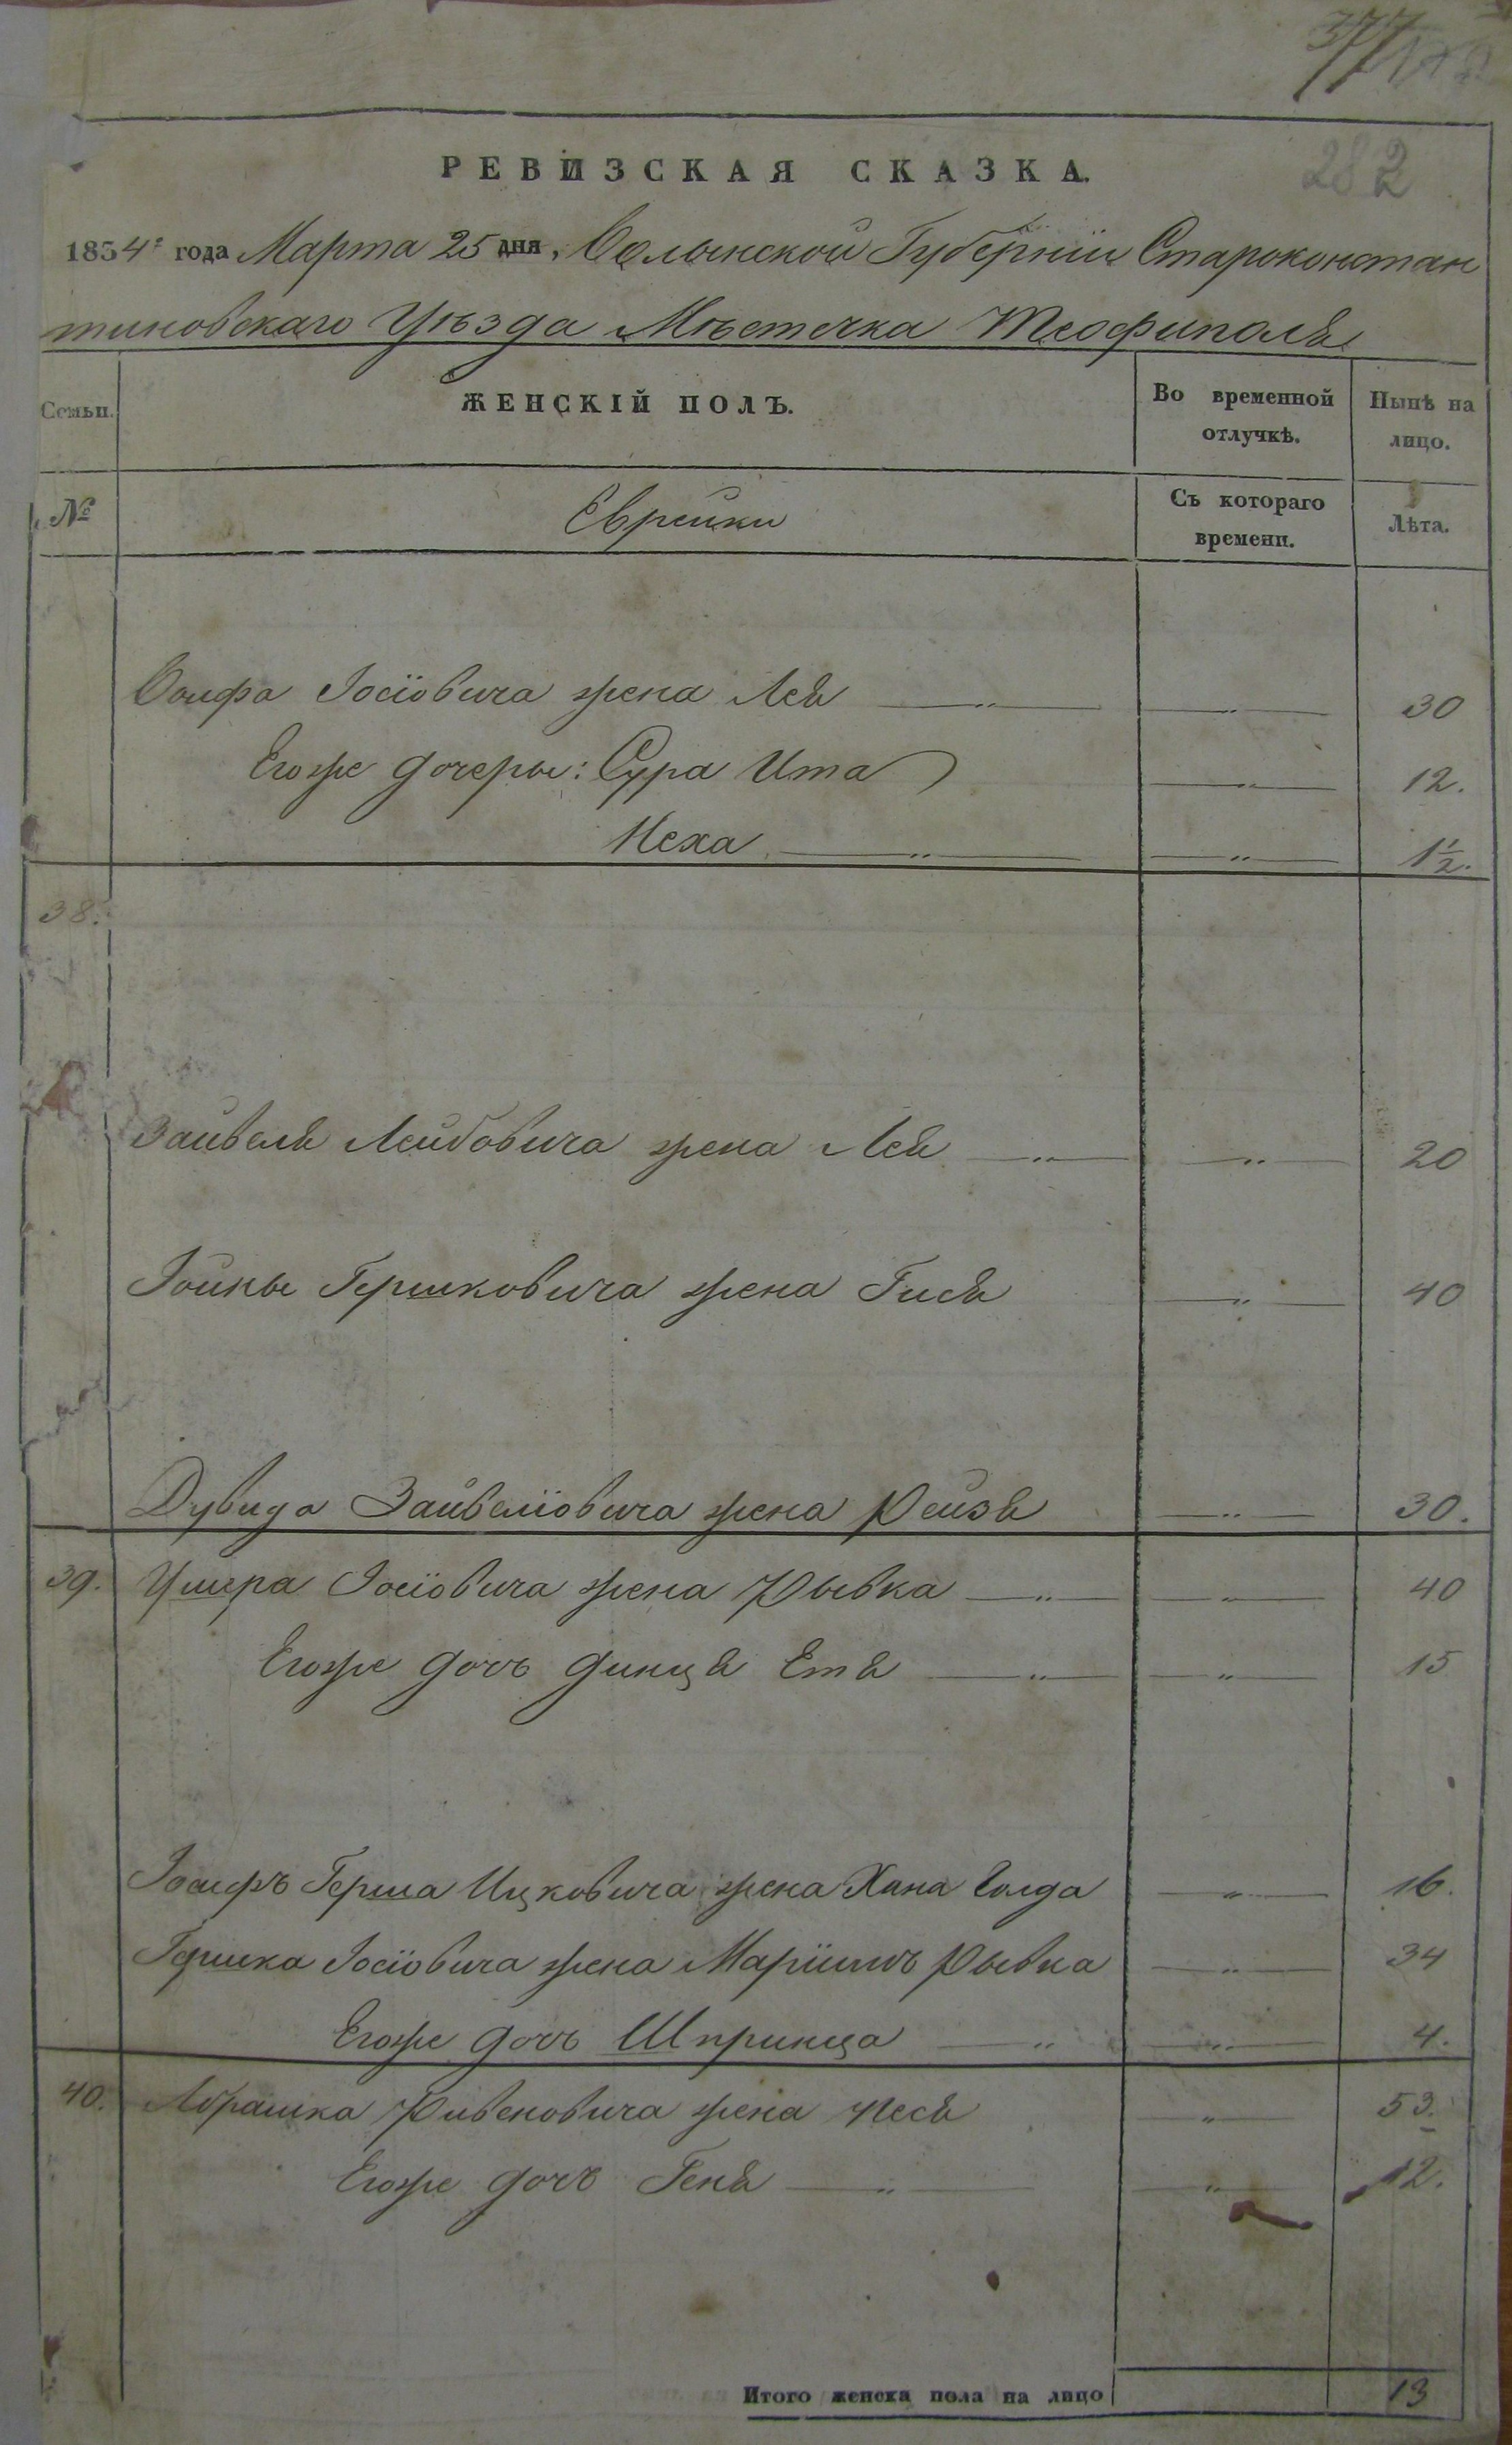 377
282
РЕВИЗСКАЯ СКАЗКА.
1834г года Марта 25 дня, Волынской Губерніи Староконстан
тиновскаго Уѣзда Мѣстечка Теофиполя
Семьи. ЖЕНСКІЙ ПОЛЪ. Во временной отлучкѣ. Нынѣ на лицо.
№ Еврейки Съ котораго времени. Лѣта.
Волфа Іосіовича жена Лея — „ — — „ — 30
Егоже дочеры: Сура Ита — „ — 12.
Неха — „ — — „ — 1½.
38.
Зайвеля Лейбовича жена Лея — „ — — „ — 20
Іойны Гершковича жена Гися — „ — 40
Дувида Зайвеліовича жена Рейзя — „ — 30.
39. Ушера Іосіовича жена Рывка — „ — — „ — 40
Егоже дочь динця Етя — „ — — „ — 15
Іосифъ Герша Ицковича жена Хана Голда — „ — 16.
Гершка Іосіовича жена Маріимъ Рывка — „ — 34
Егоже дочь Шпринца — „ — — „ — 4.
40. Абрашка Рувеновича жена Песя — „ — 53.
Егоже дочь Геня — „ — — „ — 12.
Итого женска пола на лицо 13